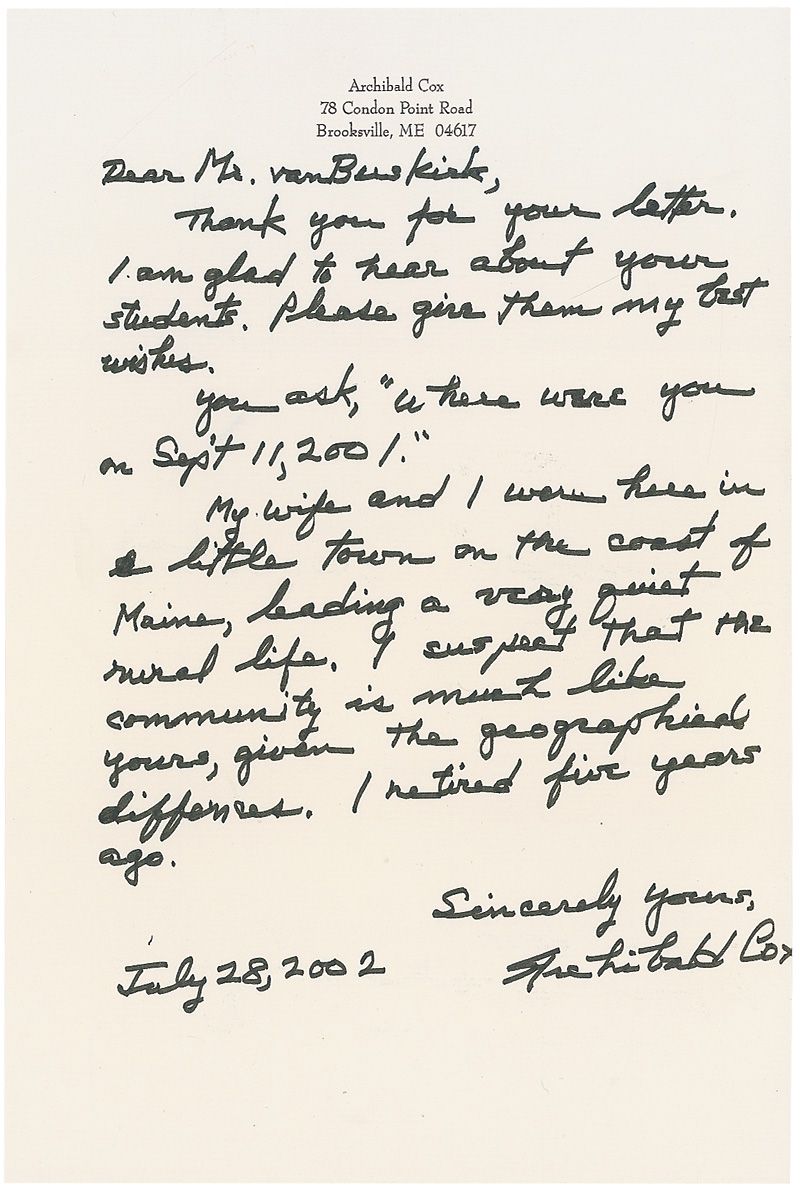 Archibald Cox
78 Condon Point Road
Brooksville, ME 04617
Dear Mr. vanBuskirk,
Thank you for your letter.
I am glad to hear about your
students. Please give them my best
wishes.
You ask, "Where were you
on Sept 11, 2001."
My wife and I were here in
a little town on the coast of
Maine, leading a very quiet
rural life. I suspect that the
community is much like
yours, given the geographical
differnces. I retired five years
ago.
Sincerely yours,
July 28, 2002 Archibald Cox